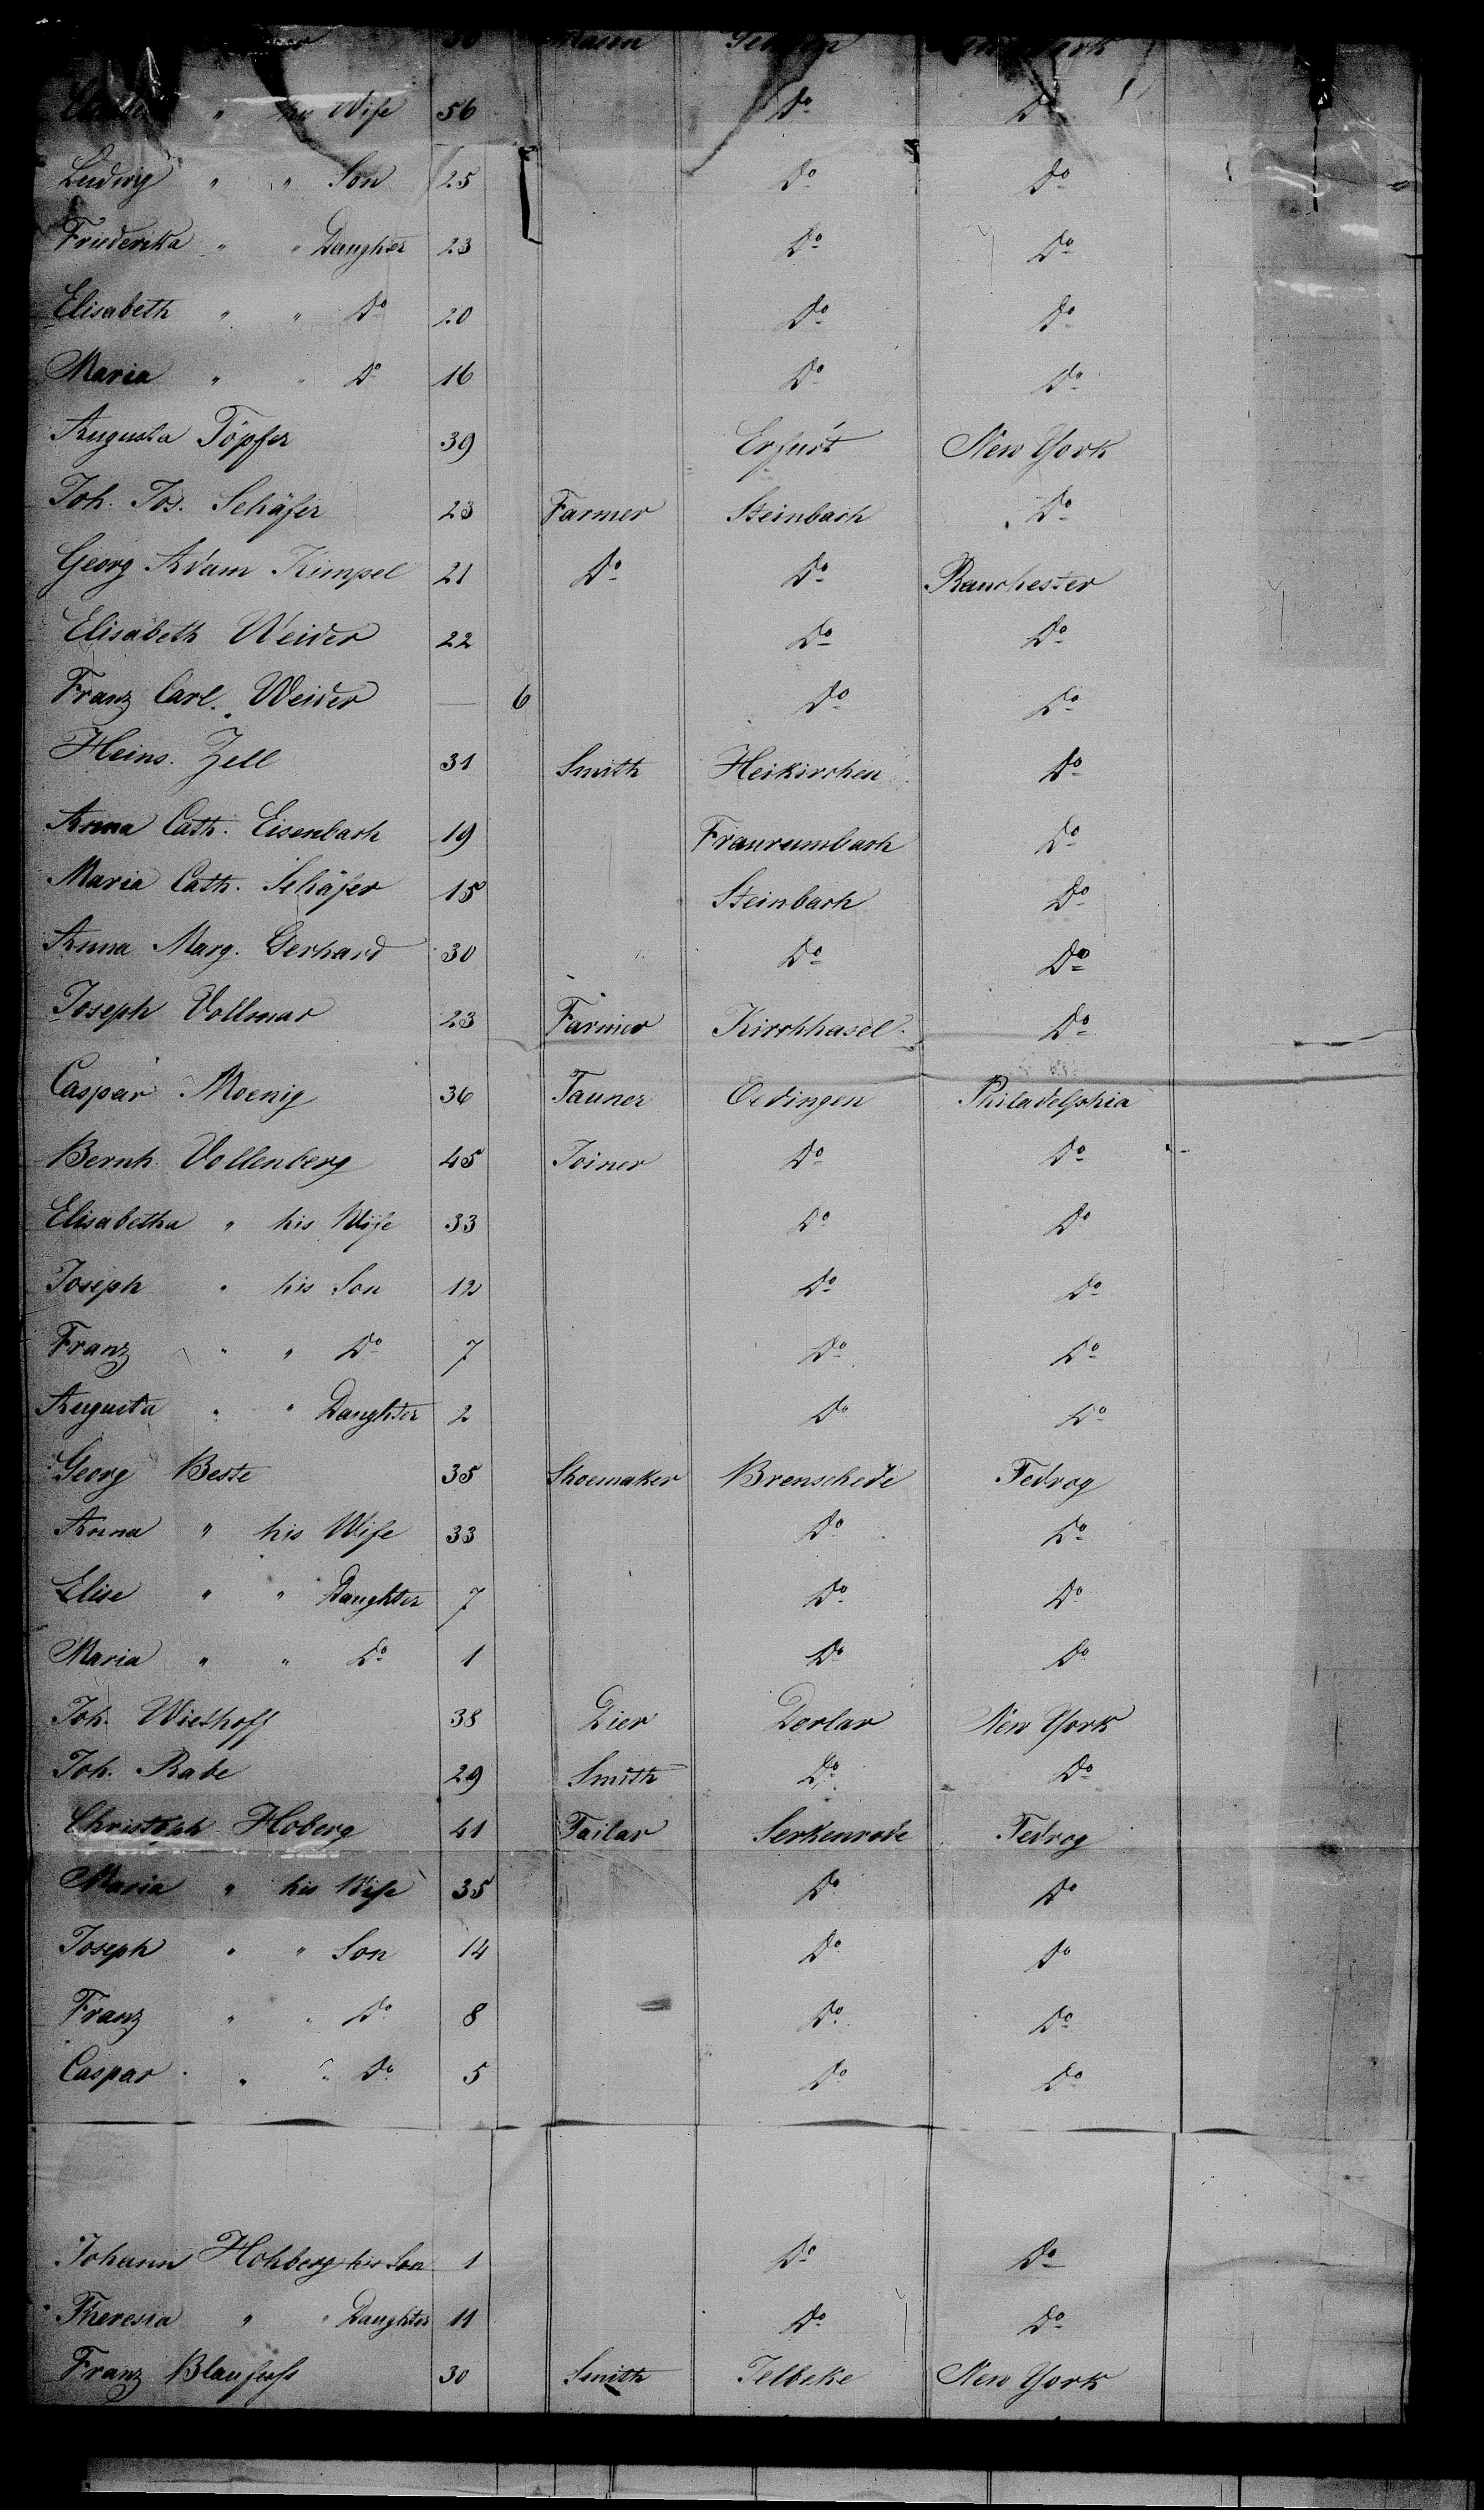 his Wife 56 Do Do
Ludwig " " Son 25 Do Do
Friederika " " Daughter 23 Do Do
Elisabeth " " Do 20 Do Do
Maria " " Do 16 Do Do
Augusta Töpfer 39 Erfurt New York
Joh. Jos. Schäfer 23 Farmer Steinbach Do
Georg Adam Kimpel 21 Do Do Ranchester
Elisabeth Weider 22 Do Do
Franz Carl. Weider — 6 Do Do
Heinr. Zell 31 Smith Heikirchen Do
Anna Cath. Eisenbach 19 Fraurumbach Do
Maria Cath. Schäfer 15 Steinbach Do
Anna Marg. Gerhard 30 Do Do
Joseph Vollmar 23 Farmer Kirchhasel Do
Caspar Moenig 36 Tanner Oedingen Philadelphia
Bernh. Vollenberg 45 Joiner Do Do
Elisabetha " his Wife 33 Do Do
Joseph " his Son 12 Do Do
Franz " " Do 7 Do Do
Augusta " " Daughter 2 Do Do
Georg Beste 35 Shoemaker Brenschede Tedrog
Anna " his Wife 33 Do Do
Elise " " Daughter 7 Do Do
Maria " " Do 1 Do Do
Joh. Wiethoff 38 Dier Dorlar New York
Joh. Rabe 29 Smith Do Do
Christoph Hoberg 41 Tailar Serkenrode Tedrog
Maria " his Wife 35 Do Do
Joseph " " Son 14 Do Do
Franz " " Do 8 Do Do
Caspar " " Do 5 Do Do
Johann Hohberg his Son 1 Do Do
Theresia " " Daughter 11 Do Do
Franz Blaufuss 30 Smith Telbeke New York